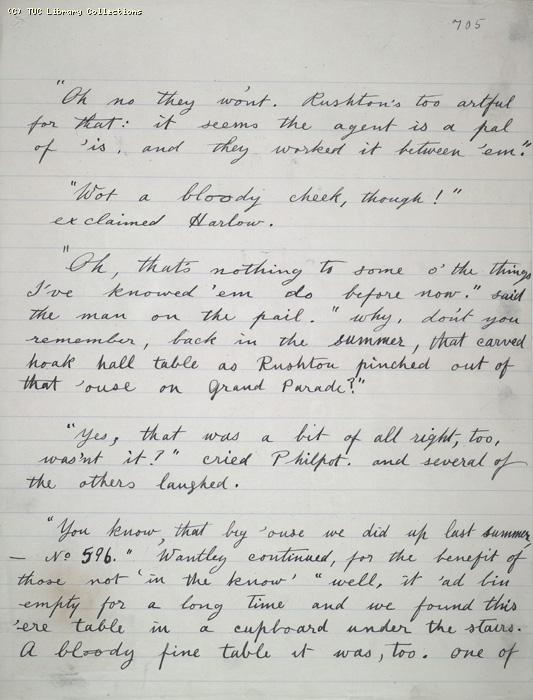 (C) TUC Library Collections
705
"Oh no they wo'nt. Rushton's too artful
for that: it seems the agent is a pal
of 'is, and they worked it between 'em."
"Wot a bloody cheek, though!"
exclaimed Harlow.
"Oh, that's nothing to some o' the things
I've knowed 'em do before now." said
the man on the pail. "why, do'nt you
remember, back in the summer, that carved
hoak hall table as Rushton pinched out of
that 'ouse on Grand Parade?"
"Yes, that was a bit of all right, too,
was'nt it?" cried Philpot. and several of
the others laughed.
"You know, that big 'ouse we did up last summer
— No 596." Wantley continued, for the benefit of
those not 'in the know' "well, it 'ad bin
empty for a long time and we found this
'ere table in a cupboard under the stairs.
A bloody fine table it was, too. one of